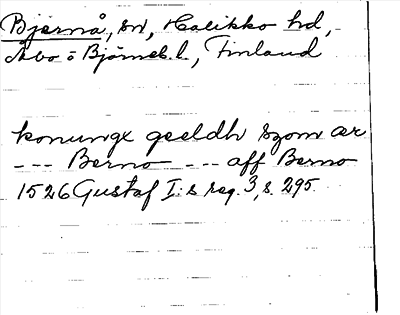 Bjärnå, sn, Halikko hd,
Åbo o Björneb. l., Finland
konungx geeldh szom ær
--- Berno --- aff Berno
1526 Gustaf I:s reg. 3, s. 295.